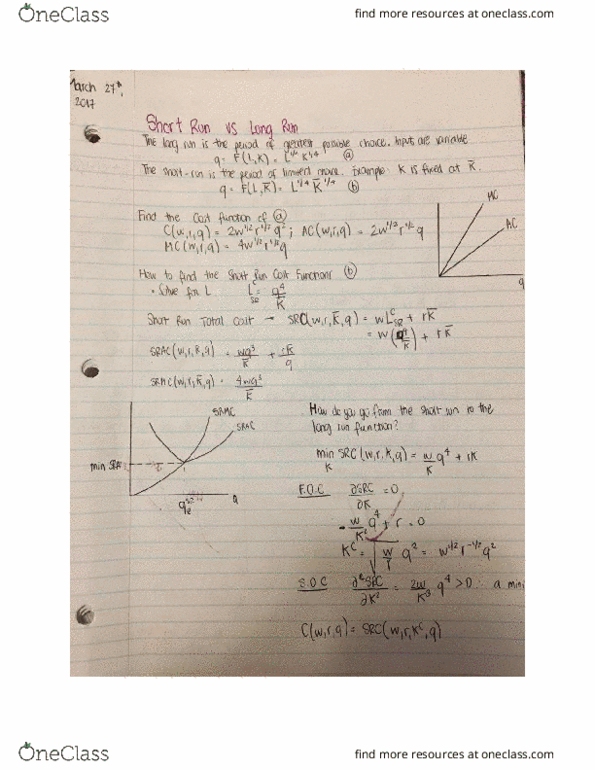 OneClass
find more resources at oneclass.com
March 27th,
2017
Short Run vs Long Run
The long run is the period of greatest possible choice. Input are variable
q = F(L,K) = L^1/4 K^1/4 (a)
The short-run is the period of limited more. Example: K is fixed at K̄.
q = F(L,K̄) = L^1/4 K̄^1/4 (b)
Find the Cost function of (a)
C(w,r,q) = 2w^1/2 r^1/2 q^2 ; AC(w,r,q) = 2w^1/2 r^1/2 q
MC(w,r,q) = 4w^1/2 r^1/2 q
MC
AC
q
How to find the Short Run Cost Functions (b)
• Solve for L L^C_SR = q^4/K̄
Short Run Total Cost → SRC(w,r,K̄,q) = wL^C_SR + rK̄
= w(q^4/K̄) + rK̄
SRAC(w,r,K̄,q) = wq^3/K̄ + rK̄/q
SRMC(w,r,K̄,q) = 4wq^3/K̄
SRMC
SRAC
min SRAC
q
How do you go from the short run to the
long run function?
min K SRC(w,r,K,q) = w/K q^4 + rK
F.O.C ∂SRC/∂K = 0
-w/K^2 q^4 + r = 0
K^C = √w/r q^2 = w^1/2 r^-1/2 q^2
S.O.C ∂^2SRC/∂K^2 = 2w/K^3 q^4 > 0 ∴ a min
C(w,r,q) = SRC(w,r,K^C,q)
OneClass
find more resources at oneclass.com